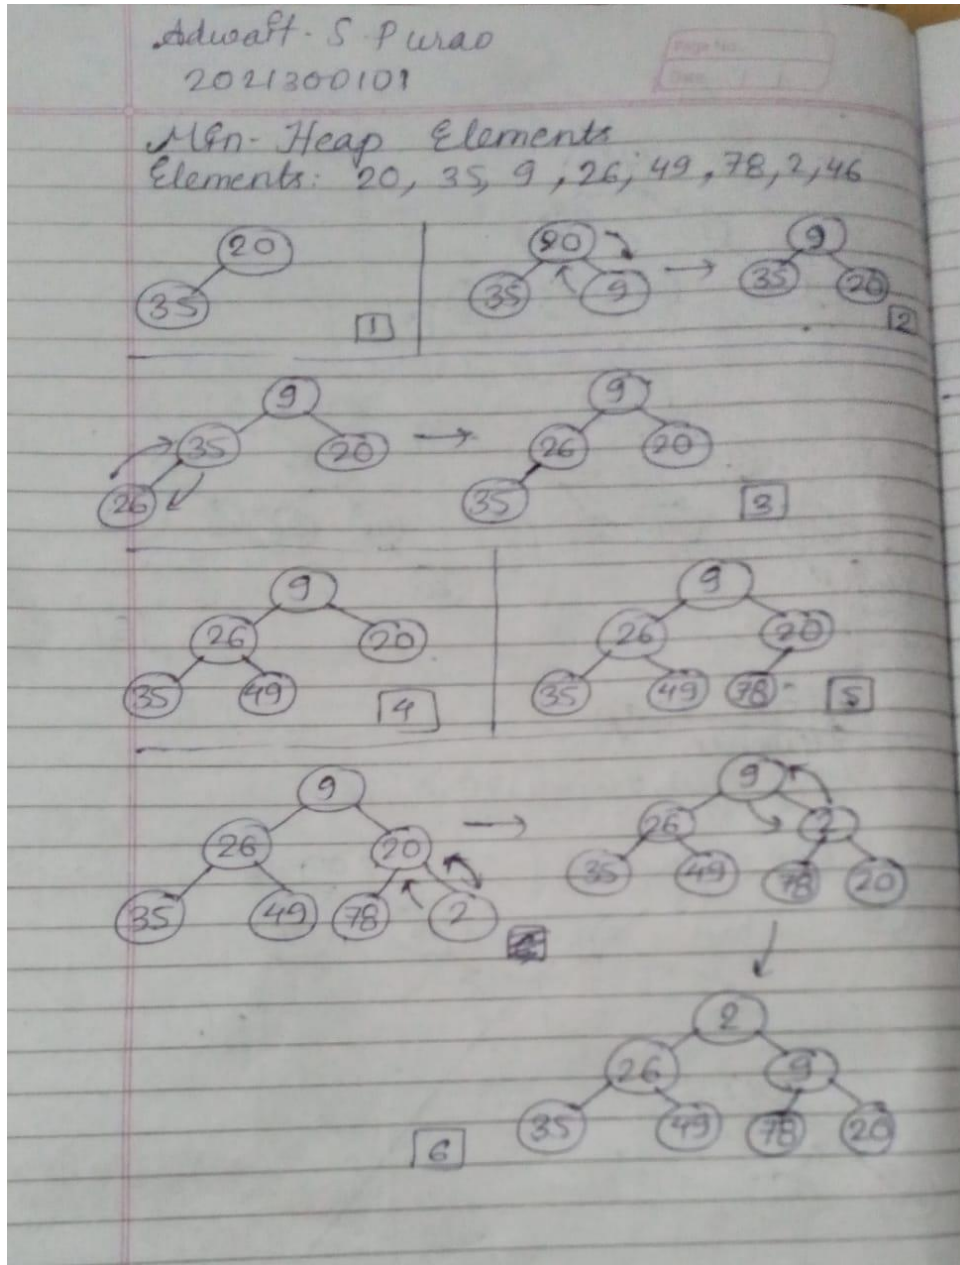 Adwait. S. Purao
2021300101
Page No.
Date
Min-Heap Elements
Elements: 20, 35, 9, 26, 49, 78, 2, 46
20
35
1
20
35 9
9
35 20
2
9
35 20
26
9
26 20
35
3
9
26 20
35 49
4
9
26 20
35 49 78
5
9
26 20
35 49 78 2
9
26 2
35 49 78 20
2
26 9
35 49 78 20
6